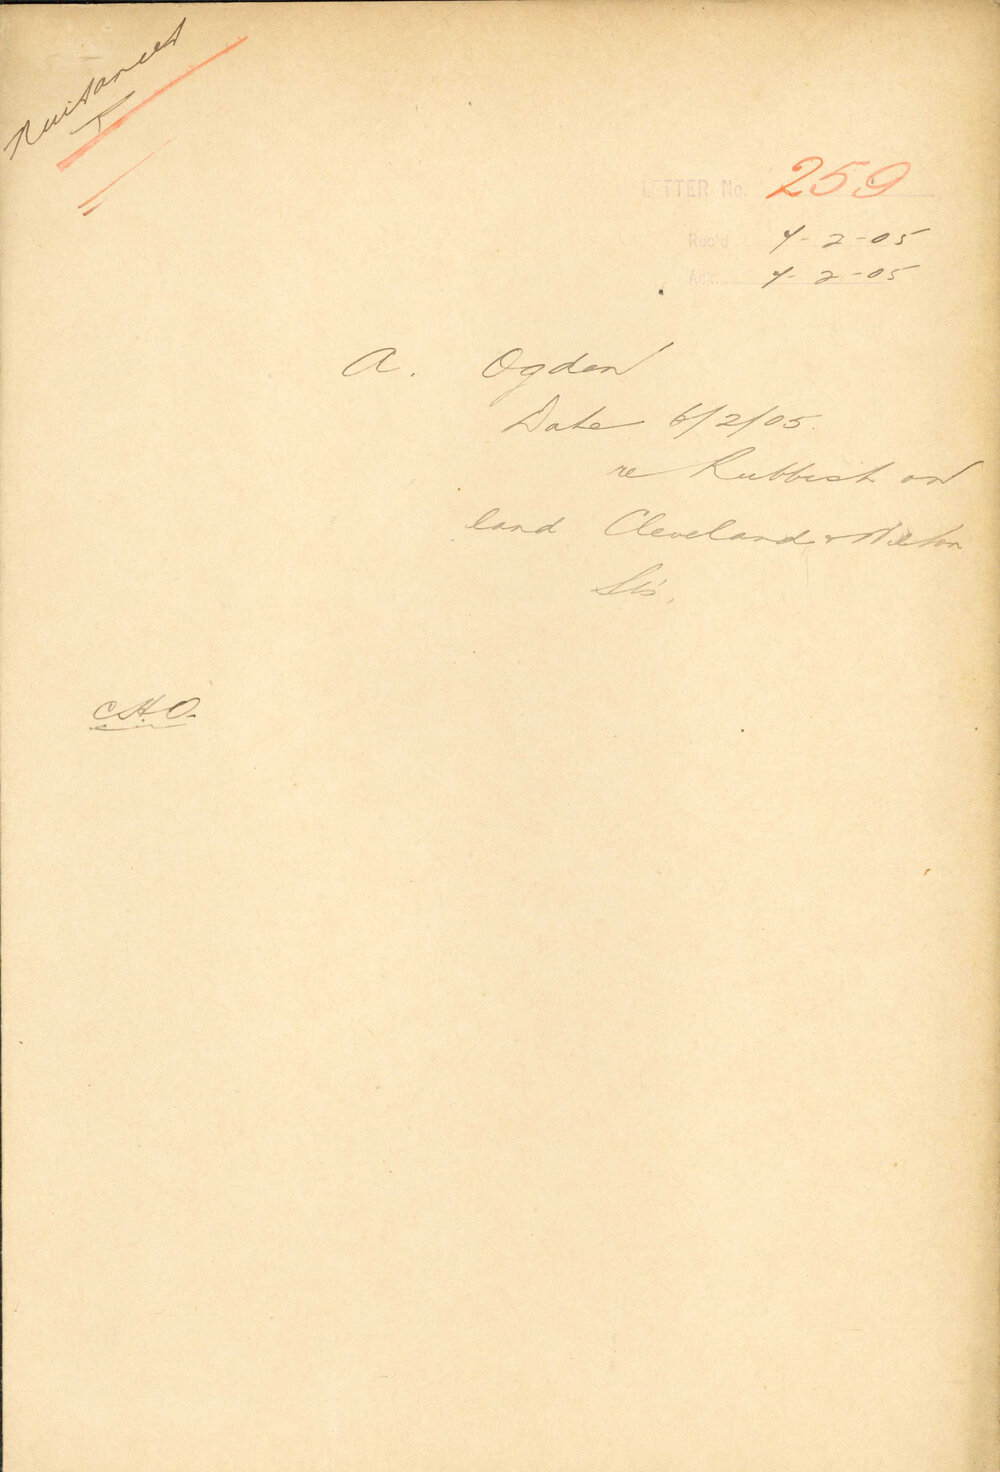 Nuisances
LETTER No. 259
Rec'd 7-2-05
Ack. 7-2-05
A. Ogden
Date 6/2/05.
re Rubbish on
land Cleveland &
Sts.
C.H.O.